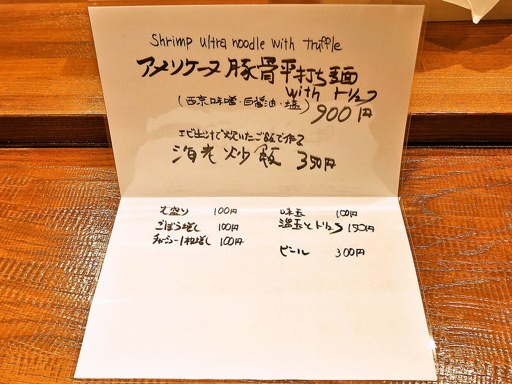 Shrimp ultra noodle with truffle
アメリケーヌ豚骨平打ち麺
with トリュフ
(西京味噌・白醤油・塩) 900円
エビ出汁で炊いたご飯で作る
海老炒飯 350円
大盛り 100円
ごぼう増し 100円
チャーシュー1枚増し 100円
味玉 100円
温玉とトリュフ 150円
ビール 300円